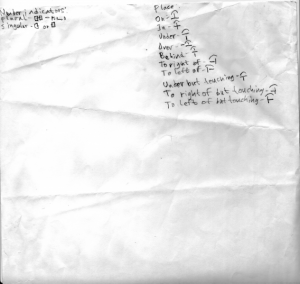 Number indicators
Plural -
Singular - or
Place -
On -
In -
Under -
Over -
Behind -
To right of -
To left of -
Under but touching -
To right of but touching -
To left of but touching -